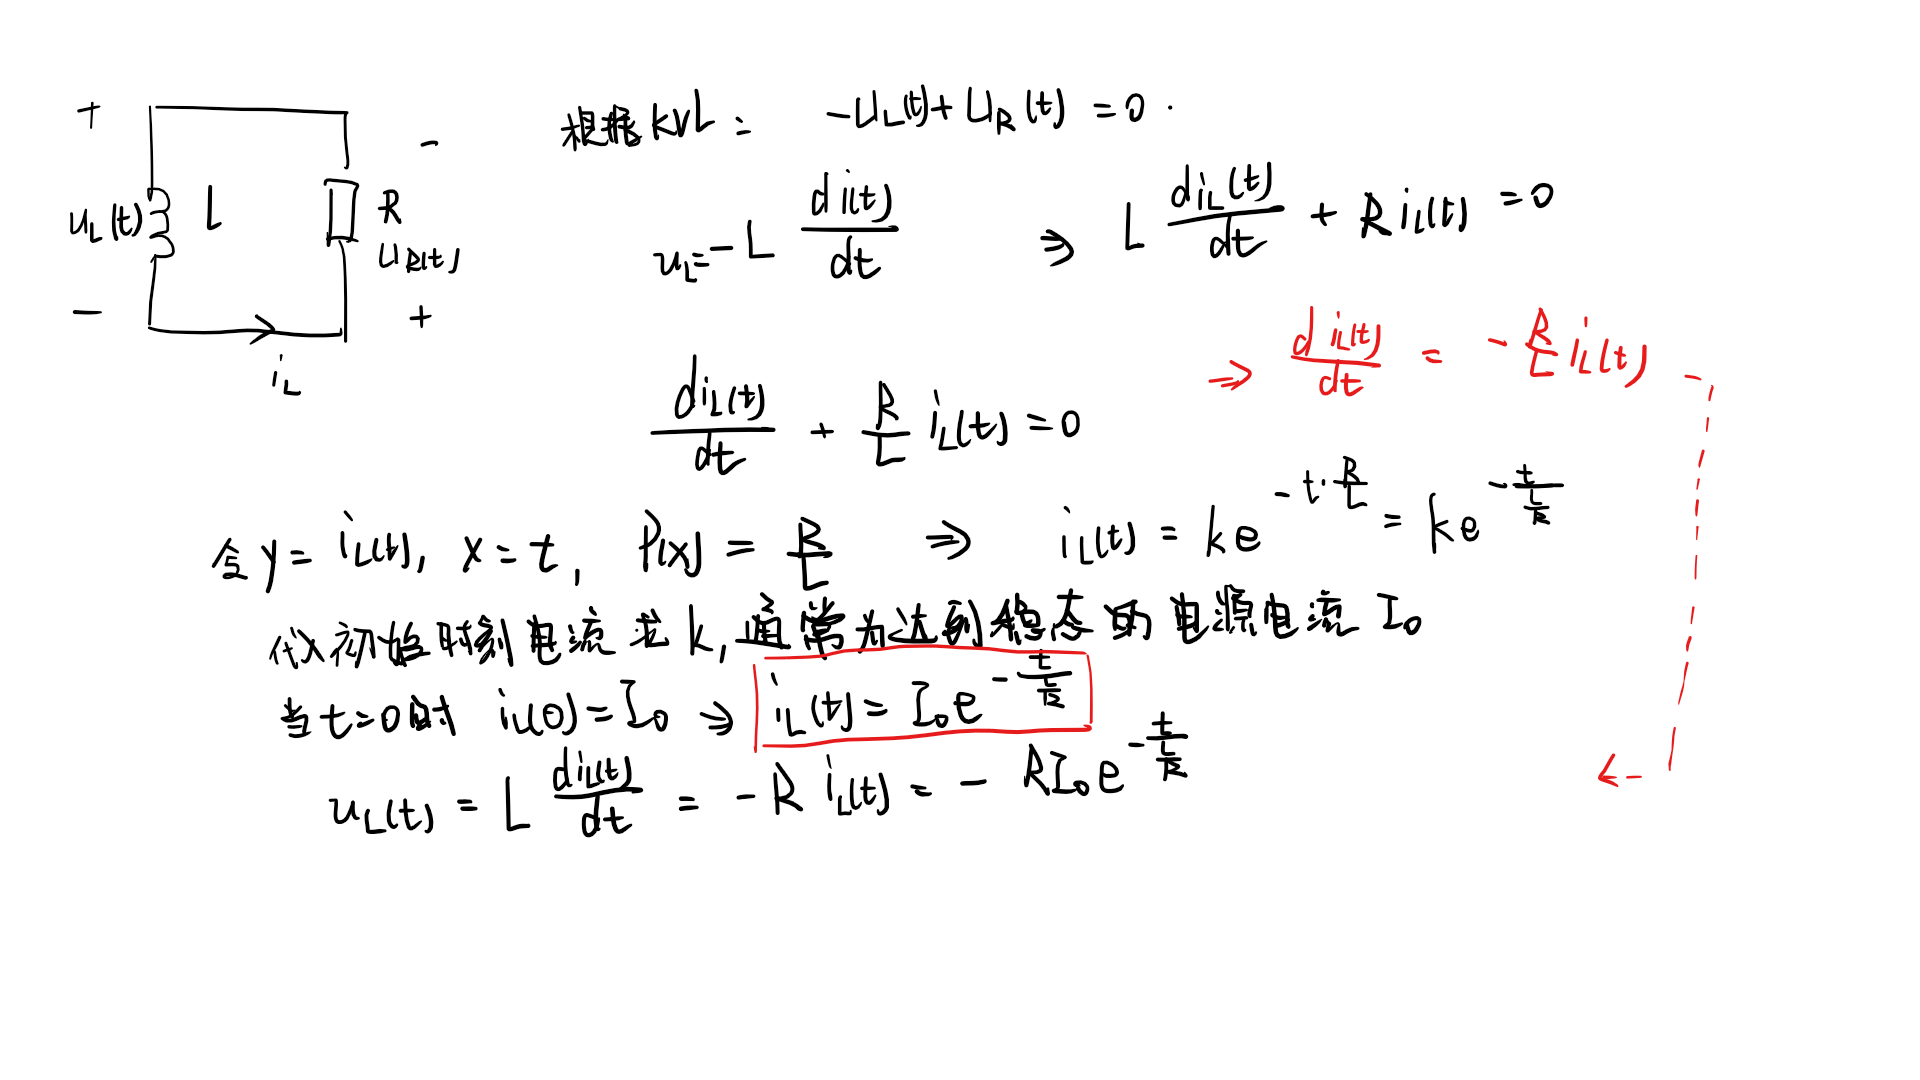 +
-
u_L(t) L R
U_R(t)
-
+
i_L
根据KVL: -U_L(t)+U_R(t)=0.
u_L=-L di(t)/dt ⇒ L di_L(t)/dt + R i_L(t)=0
⇒ di_L(t)/dt = -R/L i_L(t)
di_L(t)/dt + R/L i_L(t)=0
令y=i_L(t), x=t, P(x)=R/L ⇒ i_L(t)=ke^{-t·R/L}=ke^{-t/(L/R)}
代入初始时刻电流求k,通常为达到稳态的电源电流I_0
当t=0时 i_L(0)=I_0 ⇒ i_L(t)=I_0e^{-t/(L/R)}
u_L(t)=L di_L(t)/dt=-R i_L(t)=-RI_0e^{-t/(L/R)}